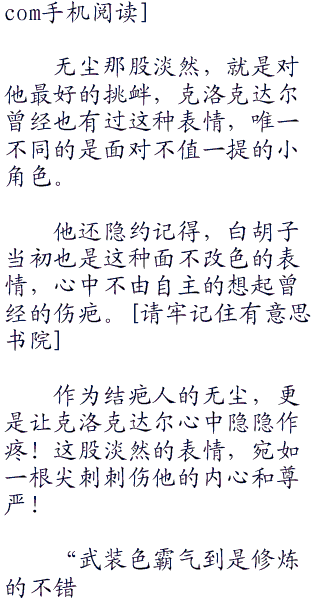 com手机阅读]
无尘那股淡然，就是对
他最好的挑衅，克洛克达尔
曾经也有过这种表情，唯一
不同的是面对不值一提的小
角色。
他还隐约记得，白胡子
当初也是这种面不改色的表
情，心中不由自主的想起曾
经的伤疤。[请牢记住有意思
书院]
作为结疤人的无尘，更
是让克洛克达尔心中隐隐作
疼！这股淡然的表情，宛如
一根尖刺刺伤他的内心和尊
严！
“武装色霸气到是修炼
的不错